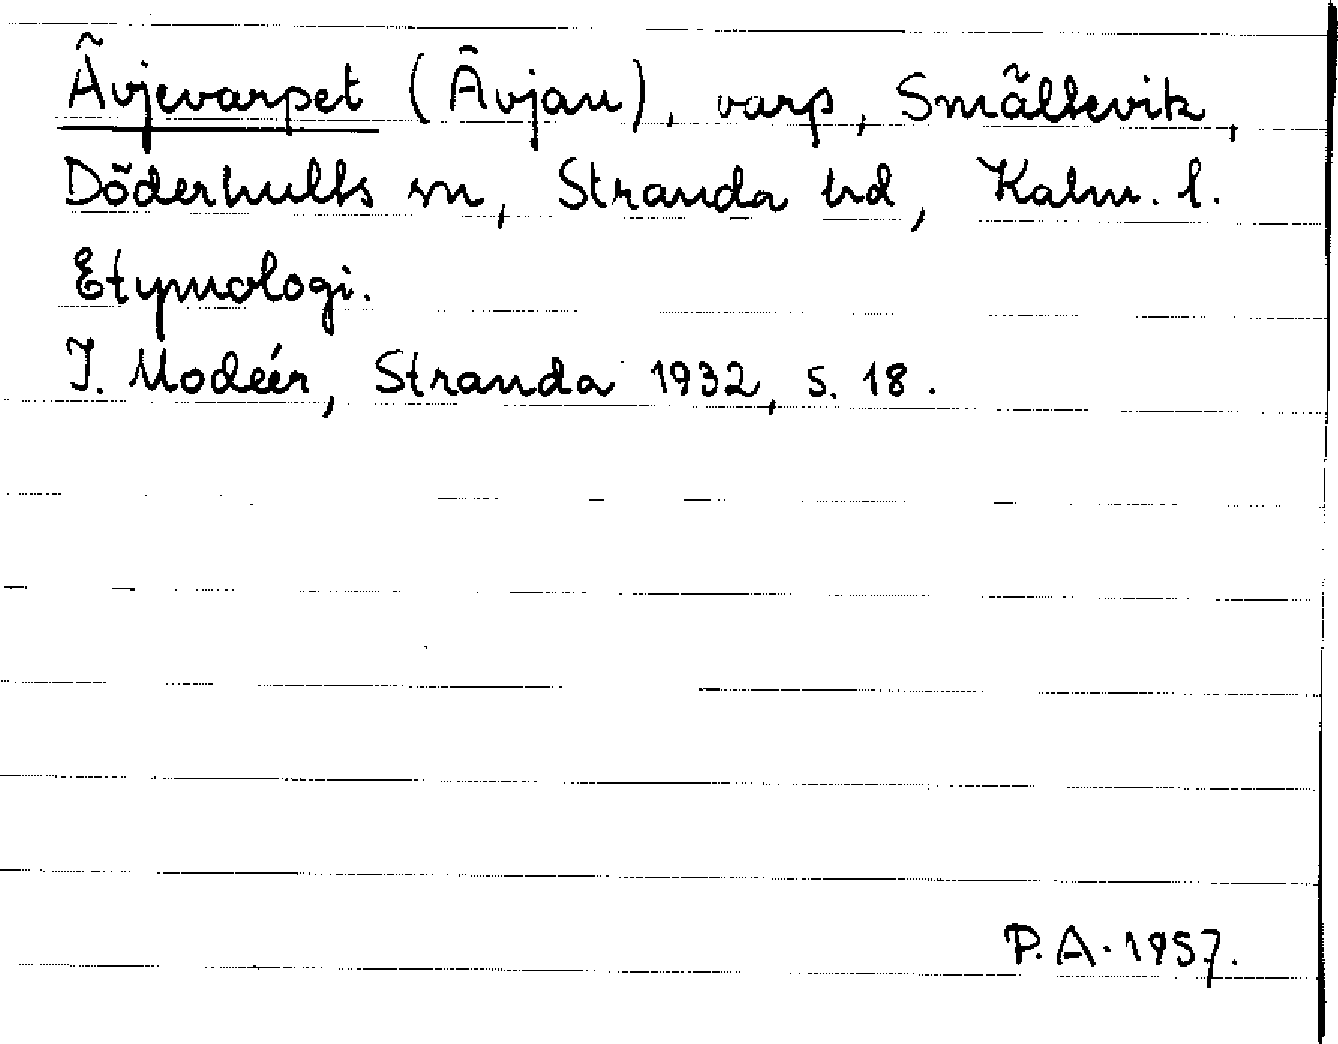 Ävjevarpet (Ävjan), varp, Smältevik,
Döderhults sn, Stranda hd, Kalm. l.
Etymologi.
I. Modéer, Stranda 1932, s. 18.
P.A. 1957.